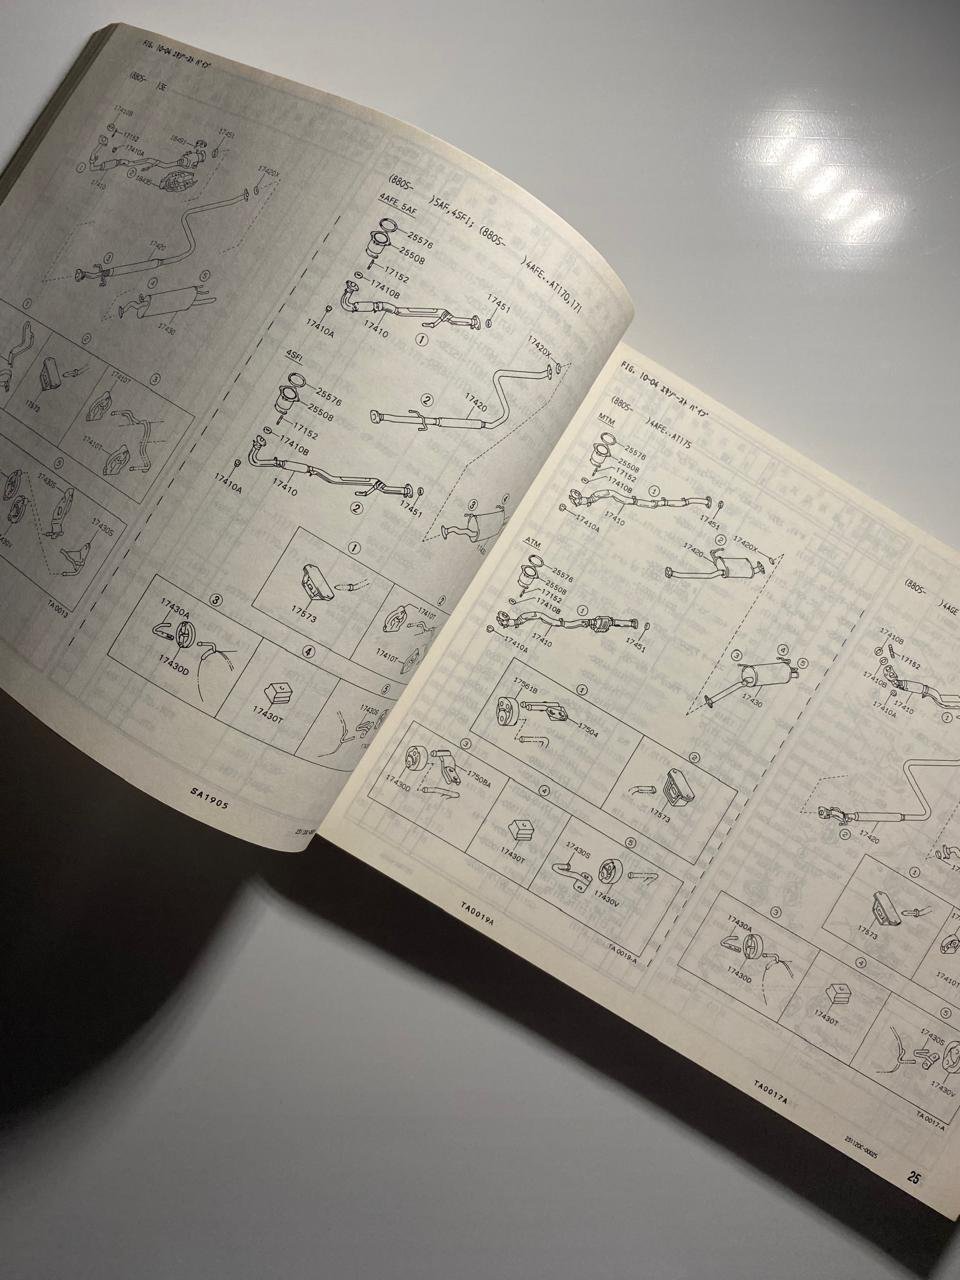 FIG. 10-04 エキゾースト パイプ
(8805- )3E
17410B
17152
17410A
18451
17451
17420X
1
17410
2
18450
17420
3
4
5
17430
2
17572
3
17410T
17410T
5
17430S
17430S
TA0013
(8805- )5AF,4SFI; (8805- )4AFE..AT170,171
4AFE,5AF
25576
25508
17152
17410B
17451
17410A
17410
1
17420X
4SFI
25576
25508
17152
17410B
17410A
17410
2
17451
2
17420
3
4
1
17573
2
17410T
17410T
3
17430A
17430D
4
17430T
5
17430S
SA1905
FIG. 10-04 エキゾースト パイプ
(8805- )4AFE..AT175
MTM
25576
25508
17152
17410B
1
17410A
17410
17451
17420X
2
17420
ATM
25576
25508
17152
17410B
1
17410A
17410
17451
3
4
5
17430
1
17561B
17504
2
17573
3
17430D
17508A
4
17430T
5
17430S
17430V
TA0019-A
TA0019A
(8805- )4AGE
17410B
17152
17410B
17410
17410A
1
2
17420
1
17573
17410T
3
17430A
17430D
4
17430T
5
17430S
17430V
TA0017-A
TA0017A
231120C-00025
25